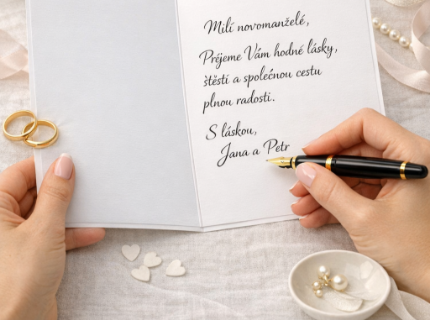 Milí novomanželé,
Přejeme Vám hodně lásky,
štěstí a společnou cestu
plnou radosti.
S láskou,
Jana a Petr